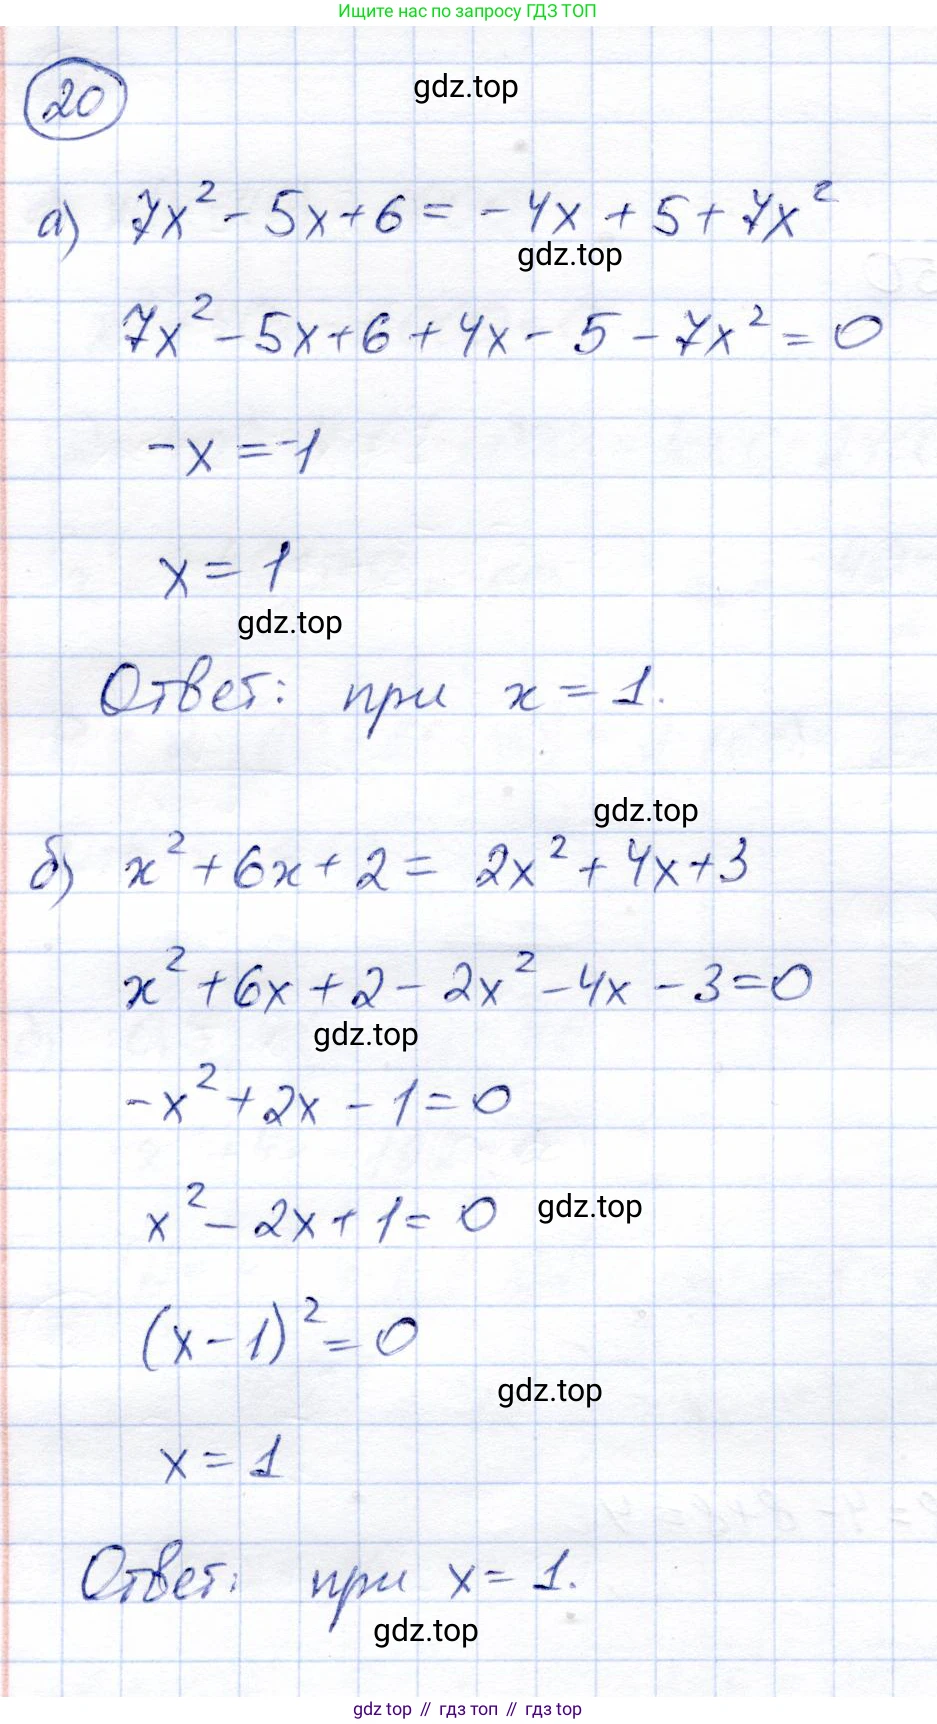 Ищите нас по запросу ГДЗ ТОП
20
gdz.top
а) 7x² - 5x + 6 = -4x + 5 + 7x²
gdz.top
7x² - 5x + 6 + 4x - 5 - 7x² = 0
-x = -1
x = 1
gdz.top
Ответ: при x = 1.
gdz.top
б) x² + 6x + 2 = 2x² + 4x + 3
x² + 6x + 2 - 2x² - 4x - 3 = 0
gdz.top
-x² + 2x - 1 = 0
x² - 2x + 1 = 0 gdz.top
(x - 1)² = 0
gdz.top
x = 1
Ответ: при x = 1.
gdz.top
gdz top // гдз топ // gdz.top